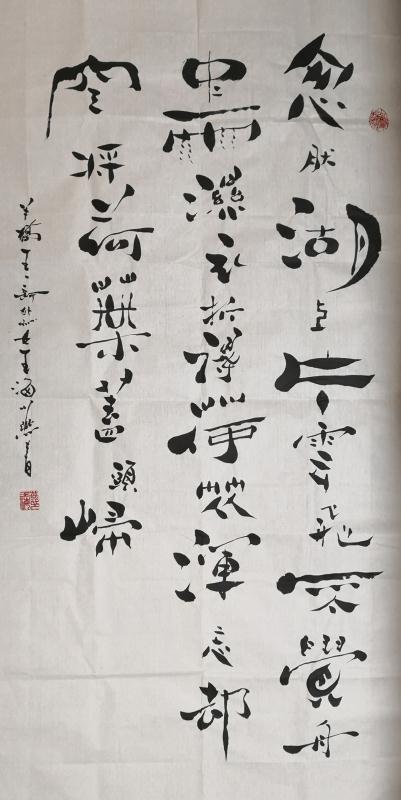 忽然湖上片雲飛不覺舟
中雨濕衣折得荷花渾忘却
空將荷葉蓋頭歸